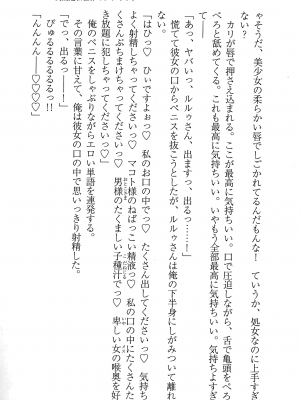 ゃそうだ、美少女の柔らかい唇でしごかれてるんだもんな！　ていうか、処女なのに上手すぎ
ない？
カリが唇で押さえ込まれる。ここが最高に気持ちいい。口で圧迫しながら、舌で亀頭をぺろ
ぺろと舐めてくる。これも最高に気持ちいい。いやもう全部最高に気持ちいい。気持ちよすぎ
て――
「あっ、ヤバいっ、ルルゥさん、出ますっ、出るっ……！」
慌てて彼女の口からペニスを抜こうとしたが、ルルゥさんは俺の下半身にしがみついて離れ
ない。
「はひっ♡　ひいですよぉっ♡　私のお口の中でっ♡　たくさん出してくださいっ♡　気持ち
よく射精しちゃってくださいっ♡　マコト様のねばっこい精液っ♡　私の口の中にたくさんた
くさんぶちまけちゃってくださいっ♡　男様のたくましい子種汁でっ♡　卑しい女の喉奥を好
き放題に犯しちゃってくださいっ♡」
俺のペニスをしゃぶりながらエロい単語を連発する。
その言葉に甘えて、俺は彼女の口の中で思いっきり射精した。
「でっ、出るっ――！」
びゅるるるるるるっ!!
「んんんんっ――♡♡♡♡」